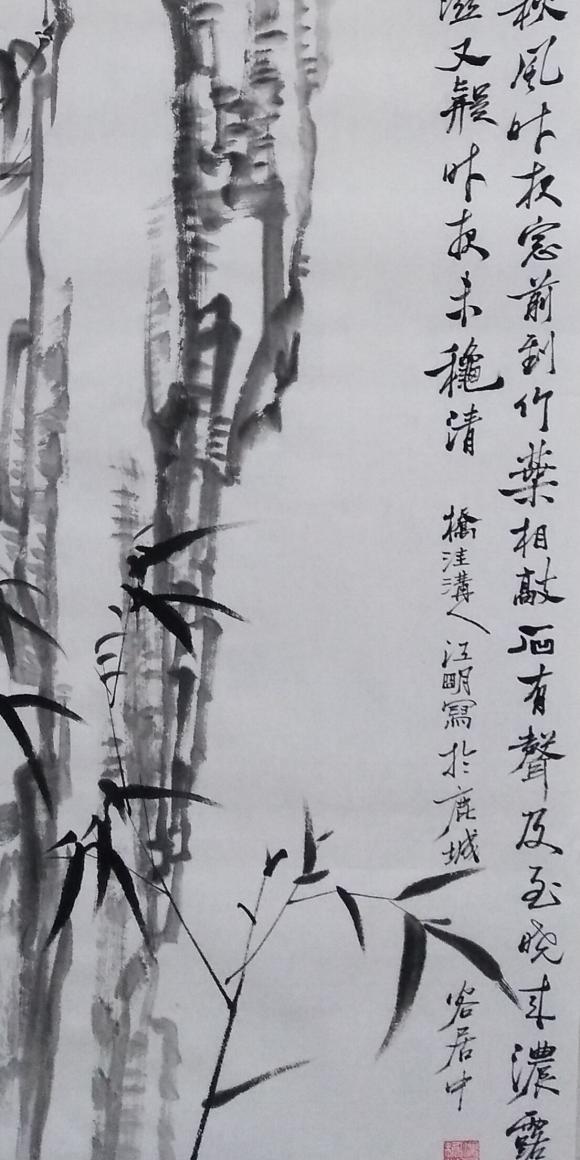 秋風昨夜窓前到竹葉相敲石有聲及至曉來濃露
滋又疑昨夜未穐清
橋洼溝人江明寫於鹿城
客居中